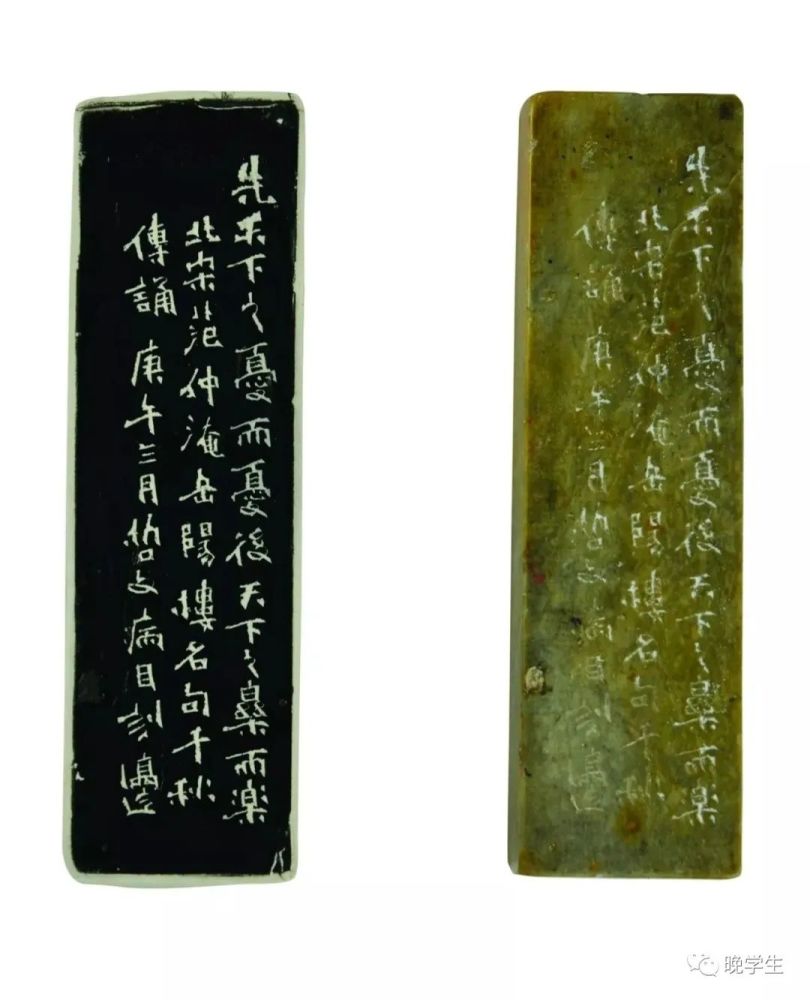 先天下之憂而憂後天下之樂而楽
北宋范仲淹岳陽樓名句千秋
傳誦 庚午三月哲文病目
先天下之憂而憂後天下之樂而楽
北宋范仲淹岳陽樓名句千秋
傳誦 庚午三月哲文病目
晚学生